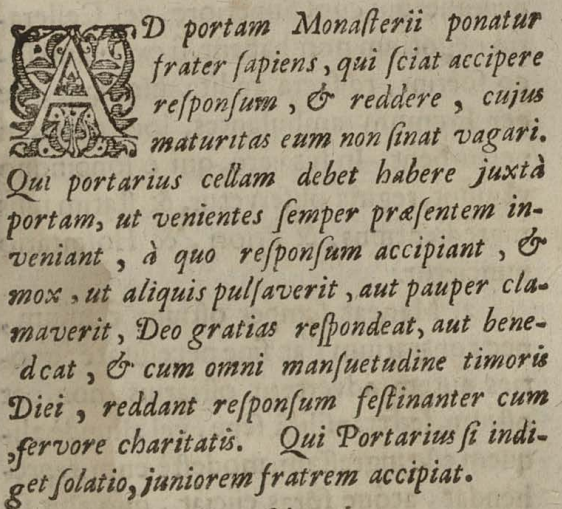 AD portam Monaſterii ponatur
frater ſapiens, qui ſciat accipere
reſponſum, & reddere, cujus
maturitas eum non ſinat vagari.
Qui portarius cellam debet habere juxtà
portam, ut venientes ſemper præſentem in-
veniant, à quo reſponſum accipiant, &
mox, ut aliquis pulſaverit, aut pauper cla-
maverit, Deo gratias reſpondeat, aut bene-
dcat, & cum omni manſuetudine timoris
Diei, reddant reſponſum feſtinanter cum
fervore charitatis. Qui Portarius ſi indi-
get ſolatio, juniorem fratrem accipiat.